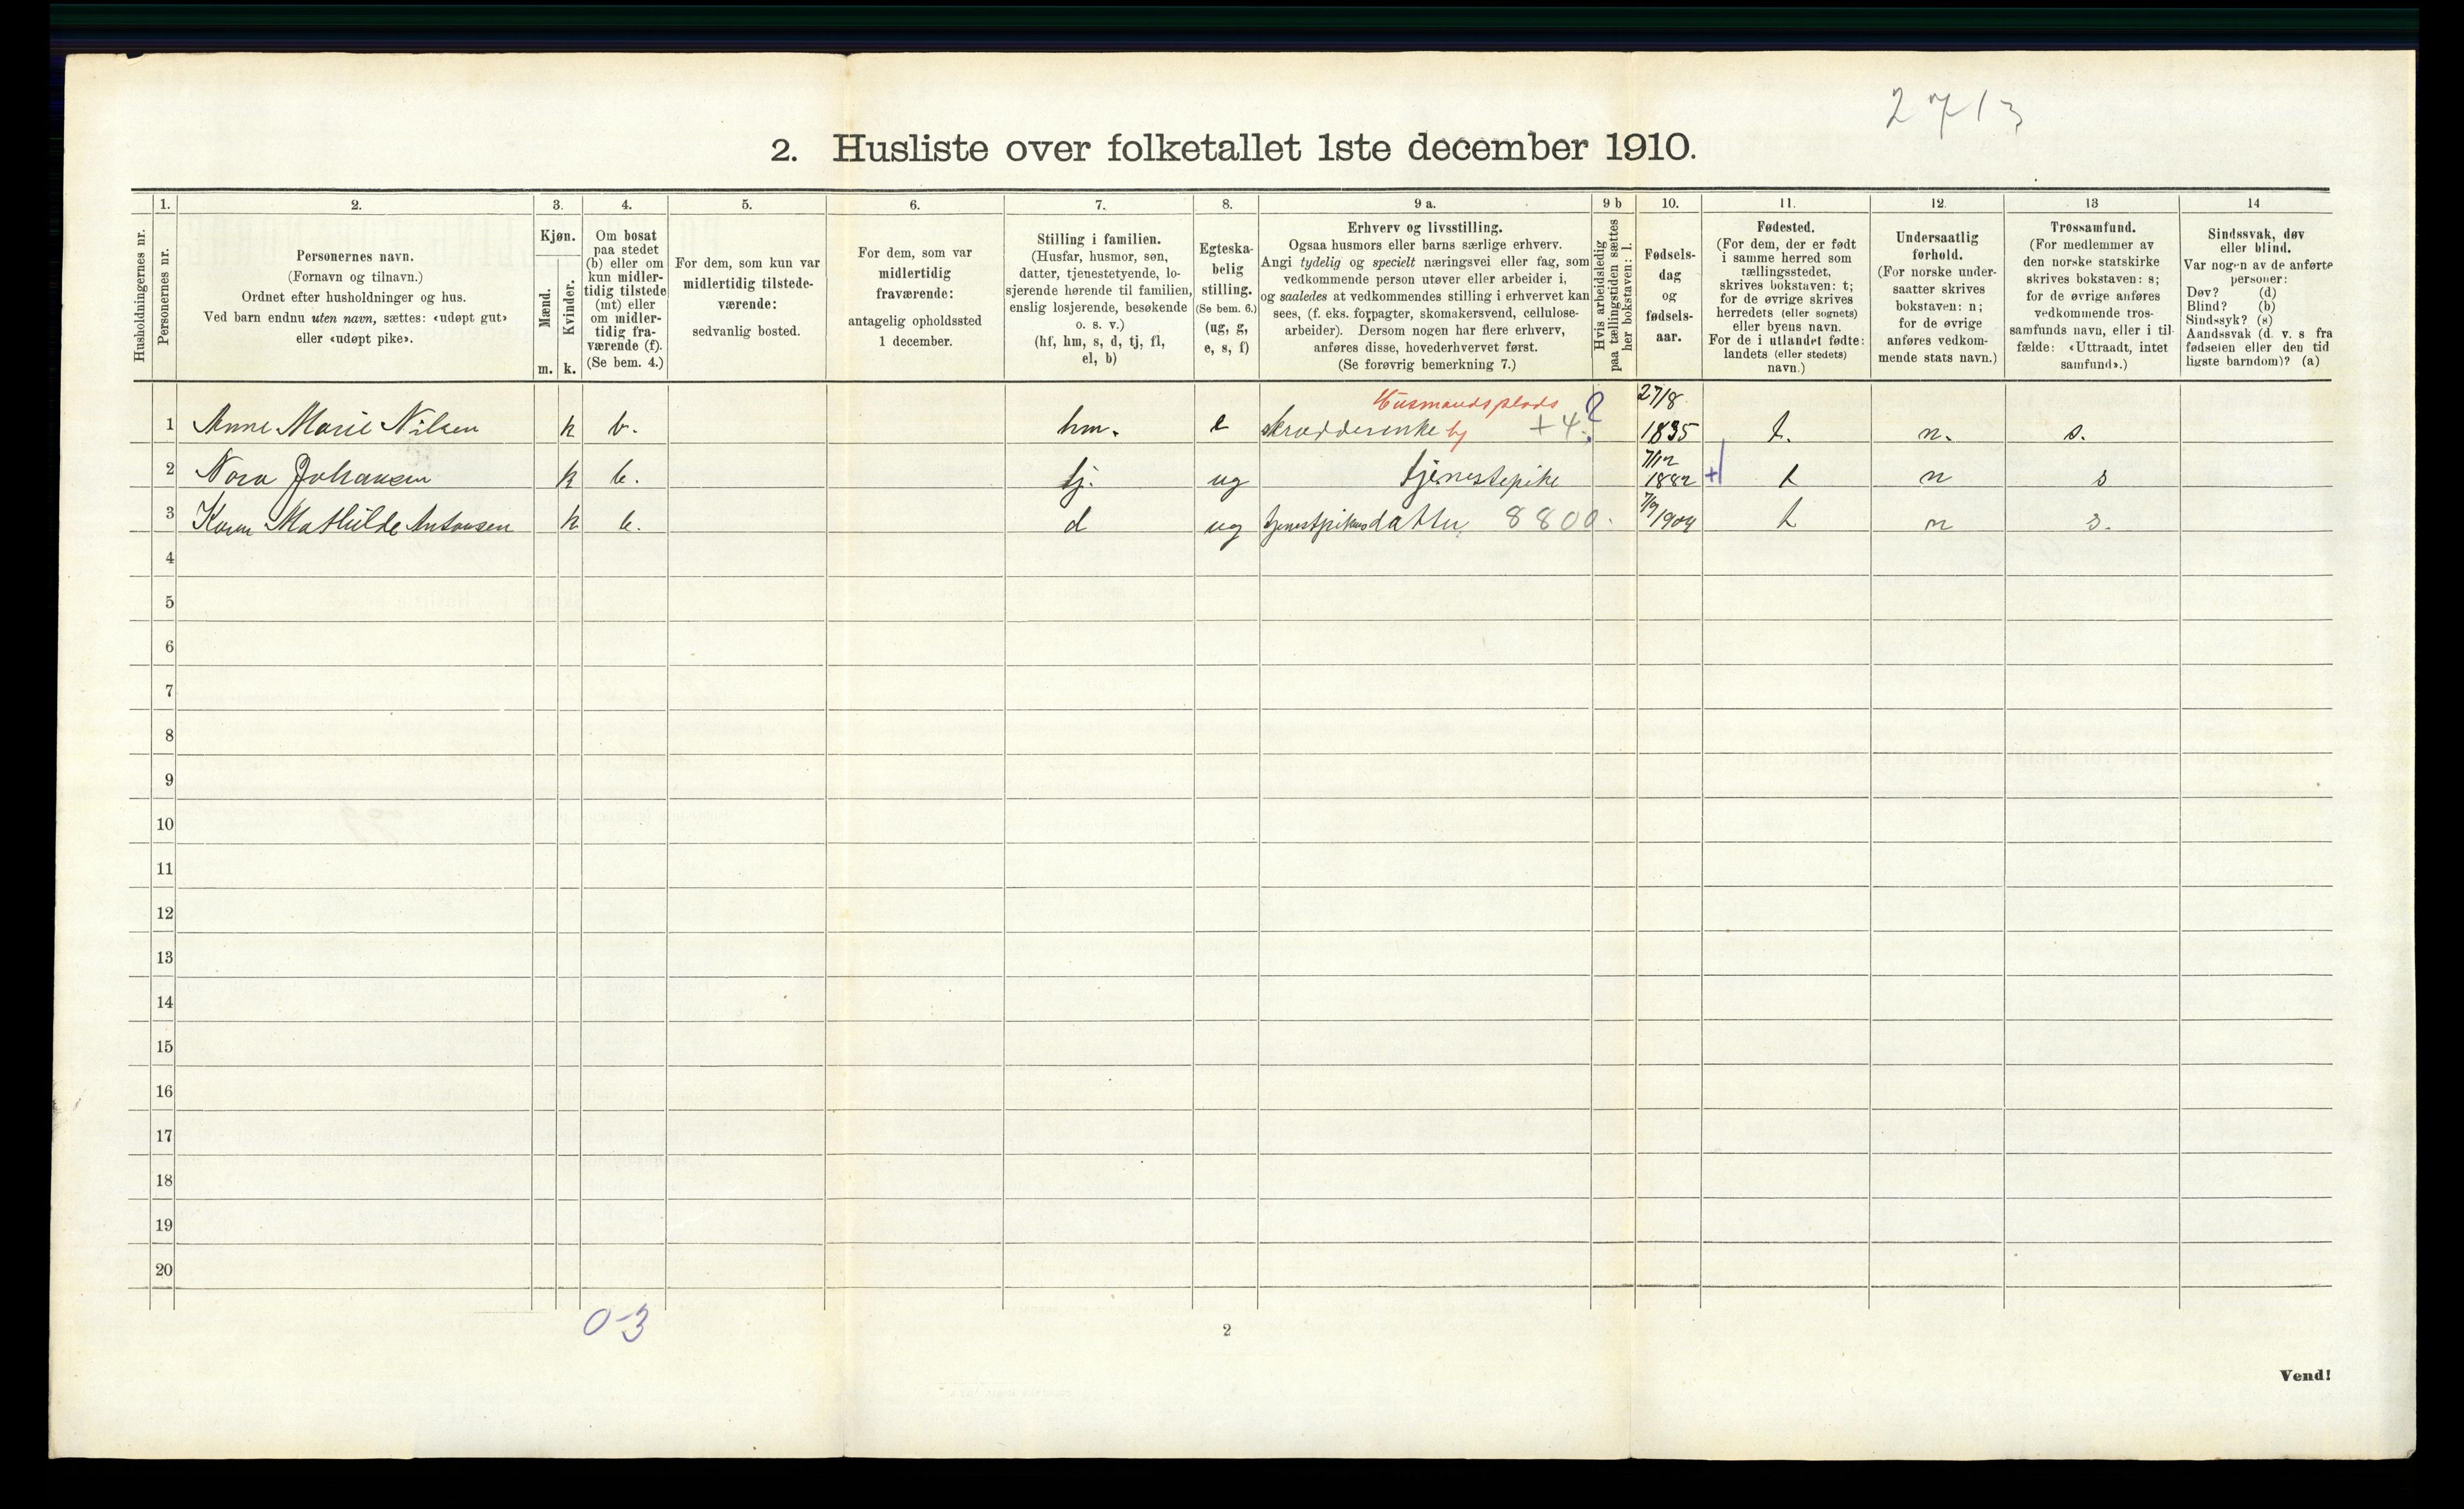 2713
2. Husliste over folketallet 1ste december 1910.
Husholdningernes nr.
1.
Personernes nr.
2.
Personernes navn.
(Fornavn og tilnavn.)
Ordnet efter husholdninger og hus.
Ved barn endnu uten navn, sættes: «udøpt gut»
eller «udøpt pike».
3.
Kjøn.
Mænd.
Kvinder.
m. k.
4.
Om bosat
paa stedet
(b) eller om
kun midler-
tidig tilstede
(mt) eller
om midler-
tidig fra-
værende (f).
(Se bem. 4.)
5.
For dem, som kun var
midlertidig tilstede-
værende:
sedvanlig bosted.
6.
For dem, som var
midlertidig
fraværende:
antagelig opholdssted
1 december.
7.
Stilling i familien.
(Husfar, husmor, søn,
datter, tjenestetyende, lo-
sjerende hørende til familien,
enslig losjerende, besøkende
o. s. v.)
(hf, hm, s, d, tj, fl,
el, b)
8.
Egteska-
belig
stilling.
(Se bem. 6.)
(ug, g,
e, s, f)
9 a.
Erhverv og livsstilling.
Ogsaa husmors eller barns særlige erhverv.
Angi tydelig og specielt næringsvei eller fag, som
vedkommende person utøver eller arbeider i,
og saaledes at vedkommendes stilling i erhvervet kan
sees, (f. eks. forpagter, skomakersvend, cellulose-
arbeider). Dersom nogen har flere erhverv,
anføres disse, hovederhvervet først.
(Se forøvrig bemerkning 7.)
9 b
Hvis arbeidsledig
paa tællingstiden sættes
her bokstaven: l.
10.
Fødsels-
dag
og
fødsels-
aar.
11.
Fødested.
(For dem, der er født
i samme herred som
tællingsstedet,
skrives bokstaven: t;
for de øvrige skrives
herredets (eller sognets)
eller byens navn.
For de i utlandet fødte:
landets (eller stedets)
navn.)
12.
Undersaatlig
forhold.
(For norske under-
saatter skrives
bokstaven: n;
for de øvrige
anføres vedkom-
mende stats navn.)
13
Trossamfund.
(For medlemmer av
den norske statskirke
skrives bokstaven: s;
for de øvrige anføres
vedkommende tros-
samfunds navn, eller i til-
fælde: «Uttraadt, intet
samfund».)
14
Sindssvak, døv
eller blind.
Var nogen av de anførte
personer:
Døv? (d)
Blind? (b)
Sindssyk? (s)
Aandssvak (d. v. s fra
fødselen eller den tid
ligste barndom)? (a)
Husmandsplads ? 27/8
1 Anne Marie Nilsen k b. hm. e skrædderenke bj +4. 1835 t. n. s.
7/12
2 Nora Johansen k b. tj. ug tjenestepike 1882 +1 t n s
3 Karen Mathilde Antonsen k b. d ug tjenestpikes datter 8800. 7/9 1904 t n s.
4
5
6
7
8
9
10
11
12
13
14
15
16
17
18
19
20
0-3
2
Vend!